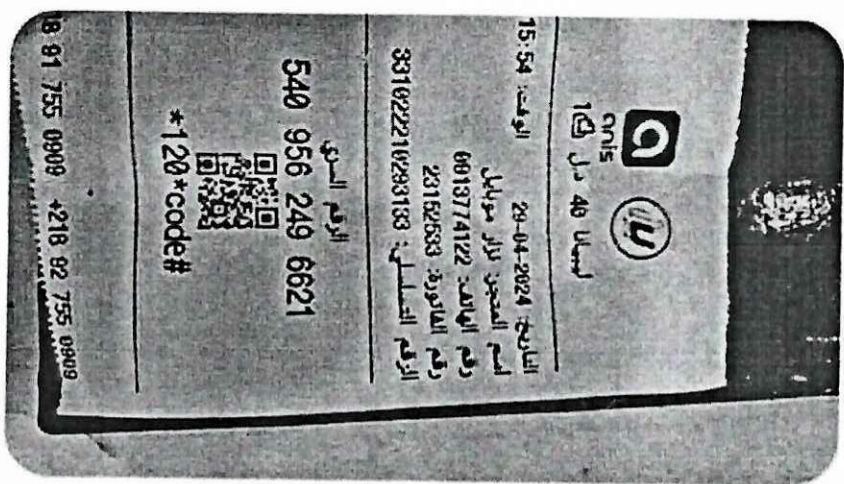 anis
ليبيانا 40 دل
التاريخ: 29-04-2024 الوقت: 15:54
اسم المتجر: نزار موبايل
رقم الهاتف: 0913774122
رقم الفاتورة: 23152533
الرقم التسلسلي: 3310222210293133
الرقم السري
540 956 249 6621
*120*code#
8 91 755 0909 +218 92 755 0909